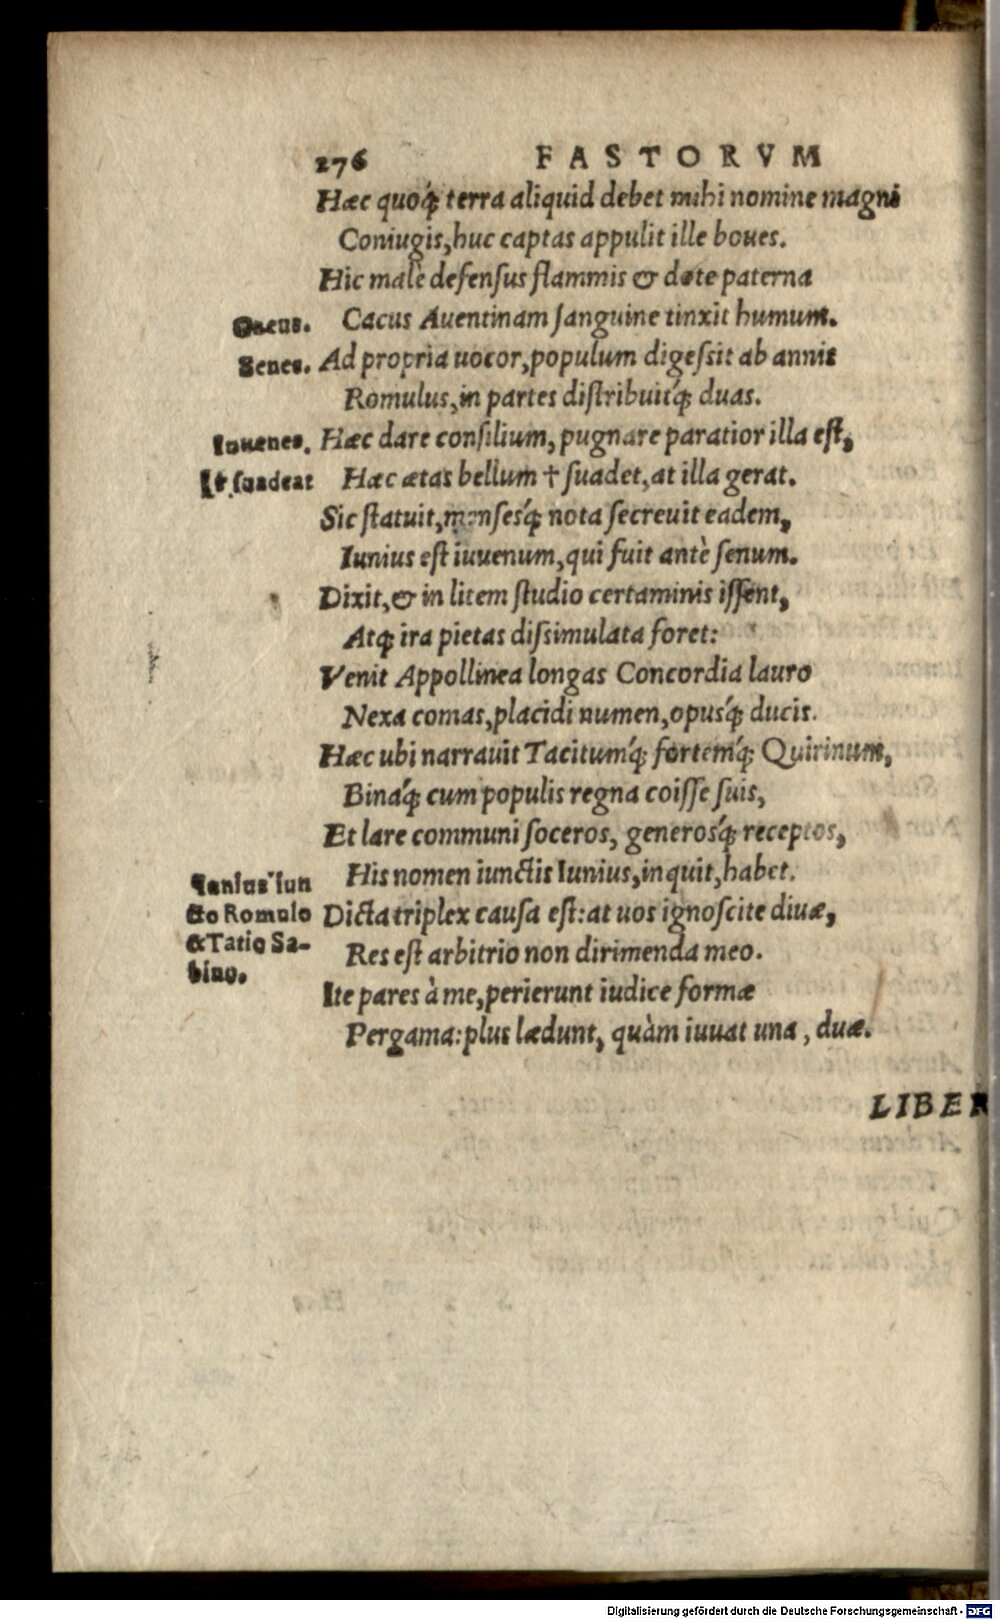 276 FASTORVM
Hæc quoq́; terra aliquid debet mihi nomine magni
Coniugis, huc captas appulit ille boues.
Hic malè defensus flammis & dote paterna
Cacus. Cacus Auentinam sanguine tinxit humum.
Senes. Ad propria uocor, populum digessit ab annis
Romulus, in partes distribuitq́; duas.
Iuuenes. Hæc dare consilium, pugnare paratior illa est,
Hæc ætas bellum † suadet, at illa gerat.
Sic statuit, mensesq́; nota secreuit eadem,
Iunius est iuuenum, qui fuit antè senum.
Dixit, & in litem studio certaminis issent,
Atq; ira pietas dissimulata foret:
Venit Appollinea longas Concordia lauro
Nexa comas, placidi numen, opusq́; ducis.
Hæc ubi narrauit Tacitumq́; fortemq́; Quirinum,
Binaq́; cum populis regna coisse suis,
Et lare communi soceros, generosq́; receptos,
His nomen iunctis Iunius, inquit, habet.
Iunius iun
cto Romulo
& Tatio Sa-
bino.
Dicta triplex causa est: at uos ignoscite diuæ,
Res est arbitrio non dirimenda meo.
Ite pares à me, perierunt iudice formæ
Pergama: plus lædunt, quàm iuuat una, duæ.
LIBER
Digitalisierung gefördert durch die Deutsche Forschungsgemeinschaft - DFG